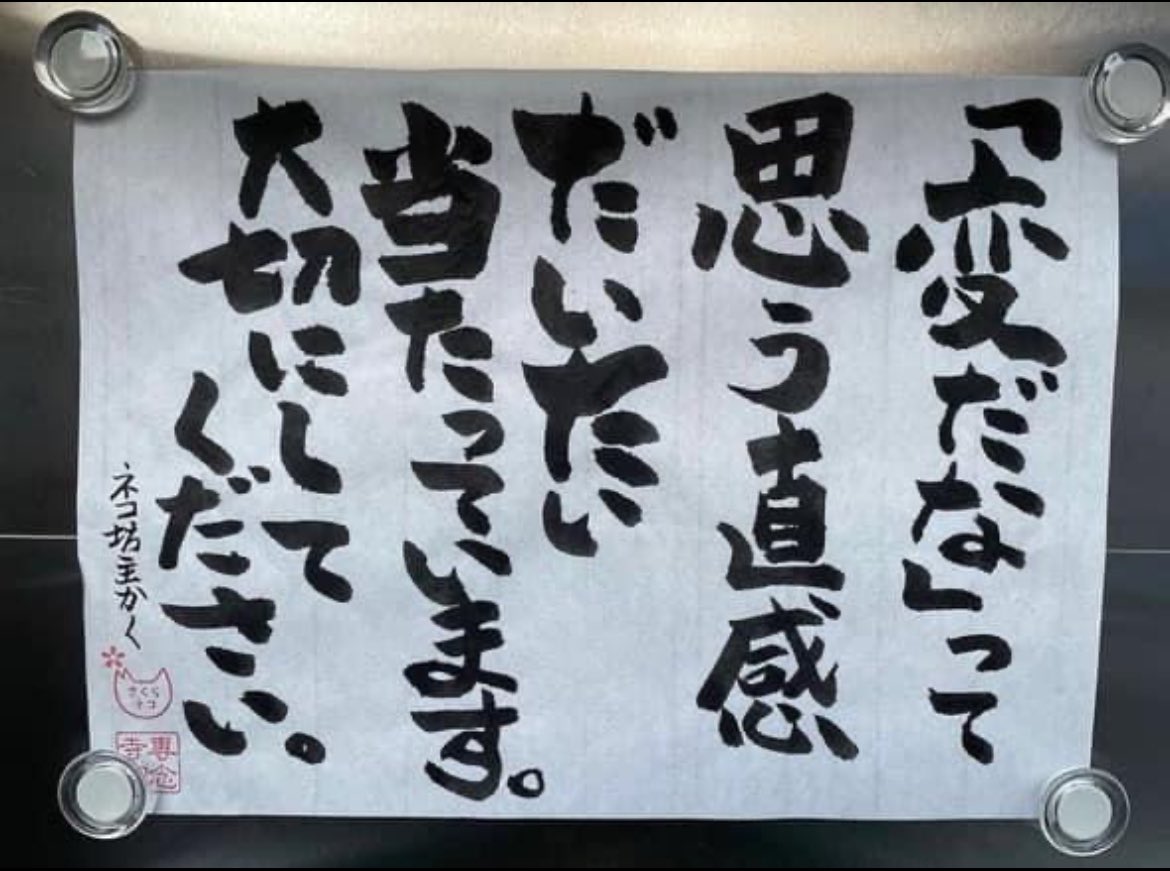 「変だな」って
思う直感
だいたい
当たっています。
大切にして
ください。
ネコ坊主かく
さくら
ネコ
専念
寺